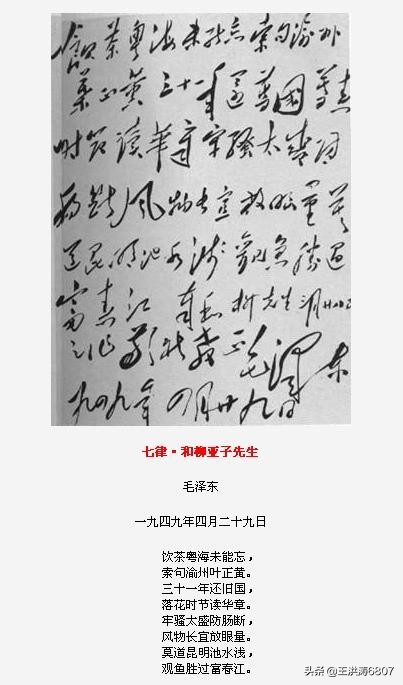 飲茶粤海未能忘索句渝州
葉正黄三十一年還舊國落花
时节读華章牢騷太盛防
腸断風物长宜放眼量莫
道昆明池水浅觀魚勝过
富春江 奉和柳先生三月廿八日
之作敬祈教正 毛泽东
一九四九年四月廿九日
七律·和柳亚子先生
毛泽东
一九四九年四月二十九日
饮茶粤海未能忘，
索句渝州叶正黄。
三十一年还旧国，
落花时节读华章。
牢骚太盛防肠断，
风物长宜放眼量。
莫道昆明池水浅，
观鱼胜过富春江。
头条 @王洪涛6807